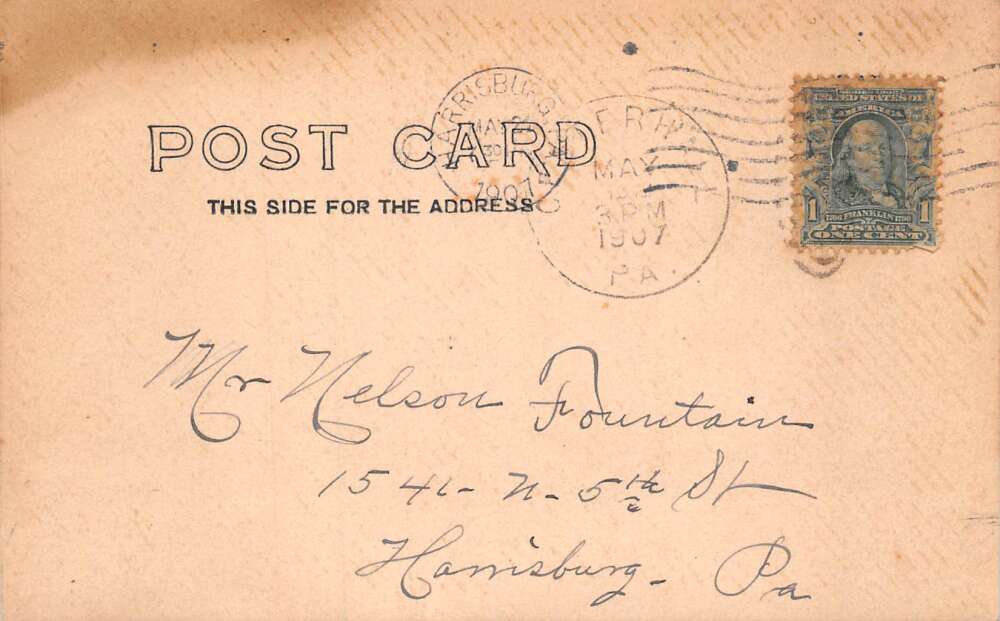 POST CARD
THIS SIDE FOR THE ADDRESS
HARRISBURG
1907
MAY
3 PM
1907
PA.
UNITED STATES OF
AMERICA
1 FRANKLIN 1
POSTAGE
ONE CENT
Mr Nelson Fountain
N. 5th St
Harrisburg. Pa